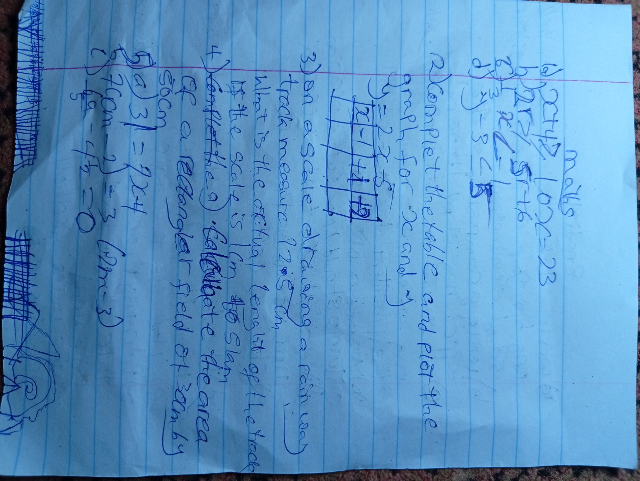 maths
1a) x+42 10x=23
b) 2r > 5r+6
c) x <
d) y-3<
2) Complet the table and plot the
graph for x and y.
y=2x-5
x -1 +1 +2
3) on a scale drawing a railway
track measure 22.5cm
What is the actual lenght of the track
If the scale is 1cm to 5km
4) the area
of a rectangular field of 30cm by
50cm
5) a) 31=9x+4
b) 7(m-2)=3(2m-3)
c) = 0